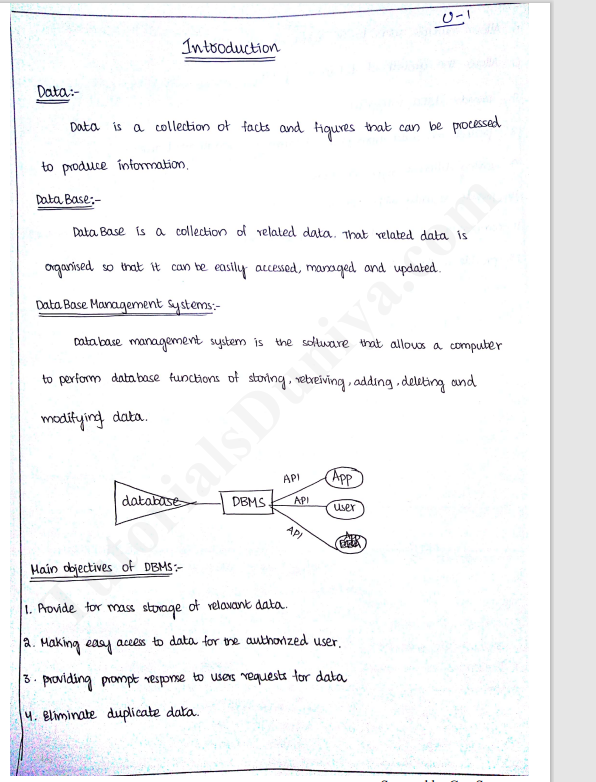 U-1
Introduction
Data:-
Data is a collection of facts and figures that can be processed
to produce information.
Data Base:-
Data Base is a collection of related data. That related data is
organised so that it can be easily accessed, managed and updated.
Data Base Management Systems:-
Database management system is the software that allows a computer
to perform database functions of storing, retreiving, adding, deleting and
modifying data.
API App
database DBMS API user
API
Main objectives of DBMS:-
1. Provide for mass storage of relavant data.
2. Making easy access to data for the authorized user.
3. providing prompt response to users requests for data
4. Eliminate duplicate data.
TutorialsDuniya.com